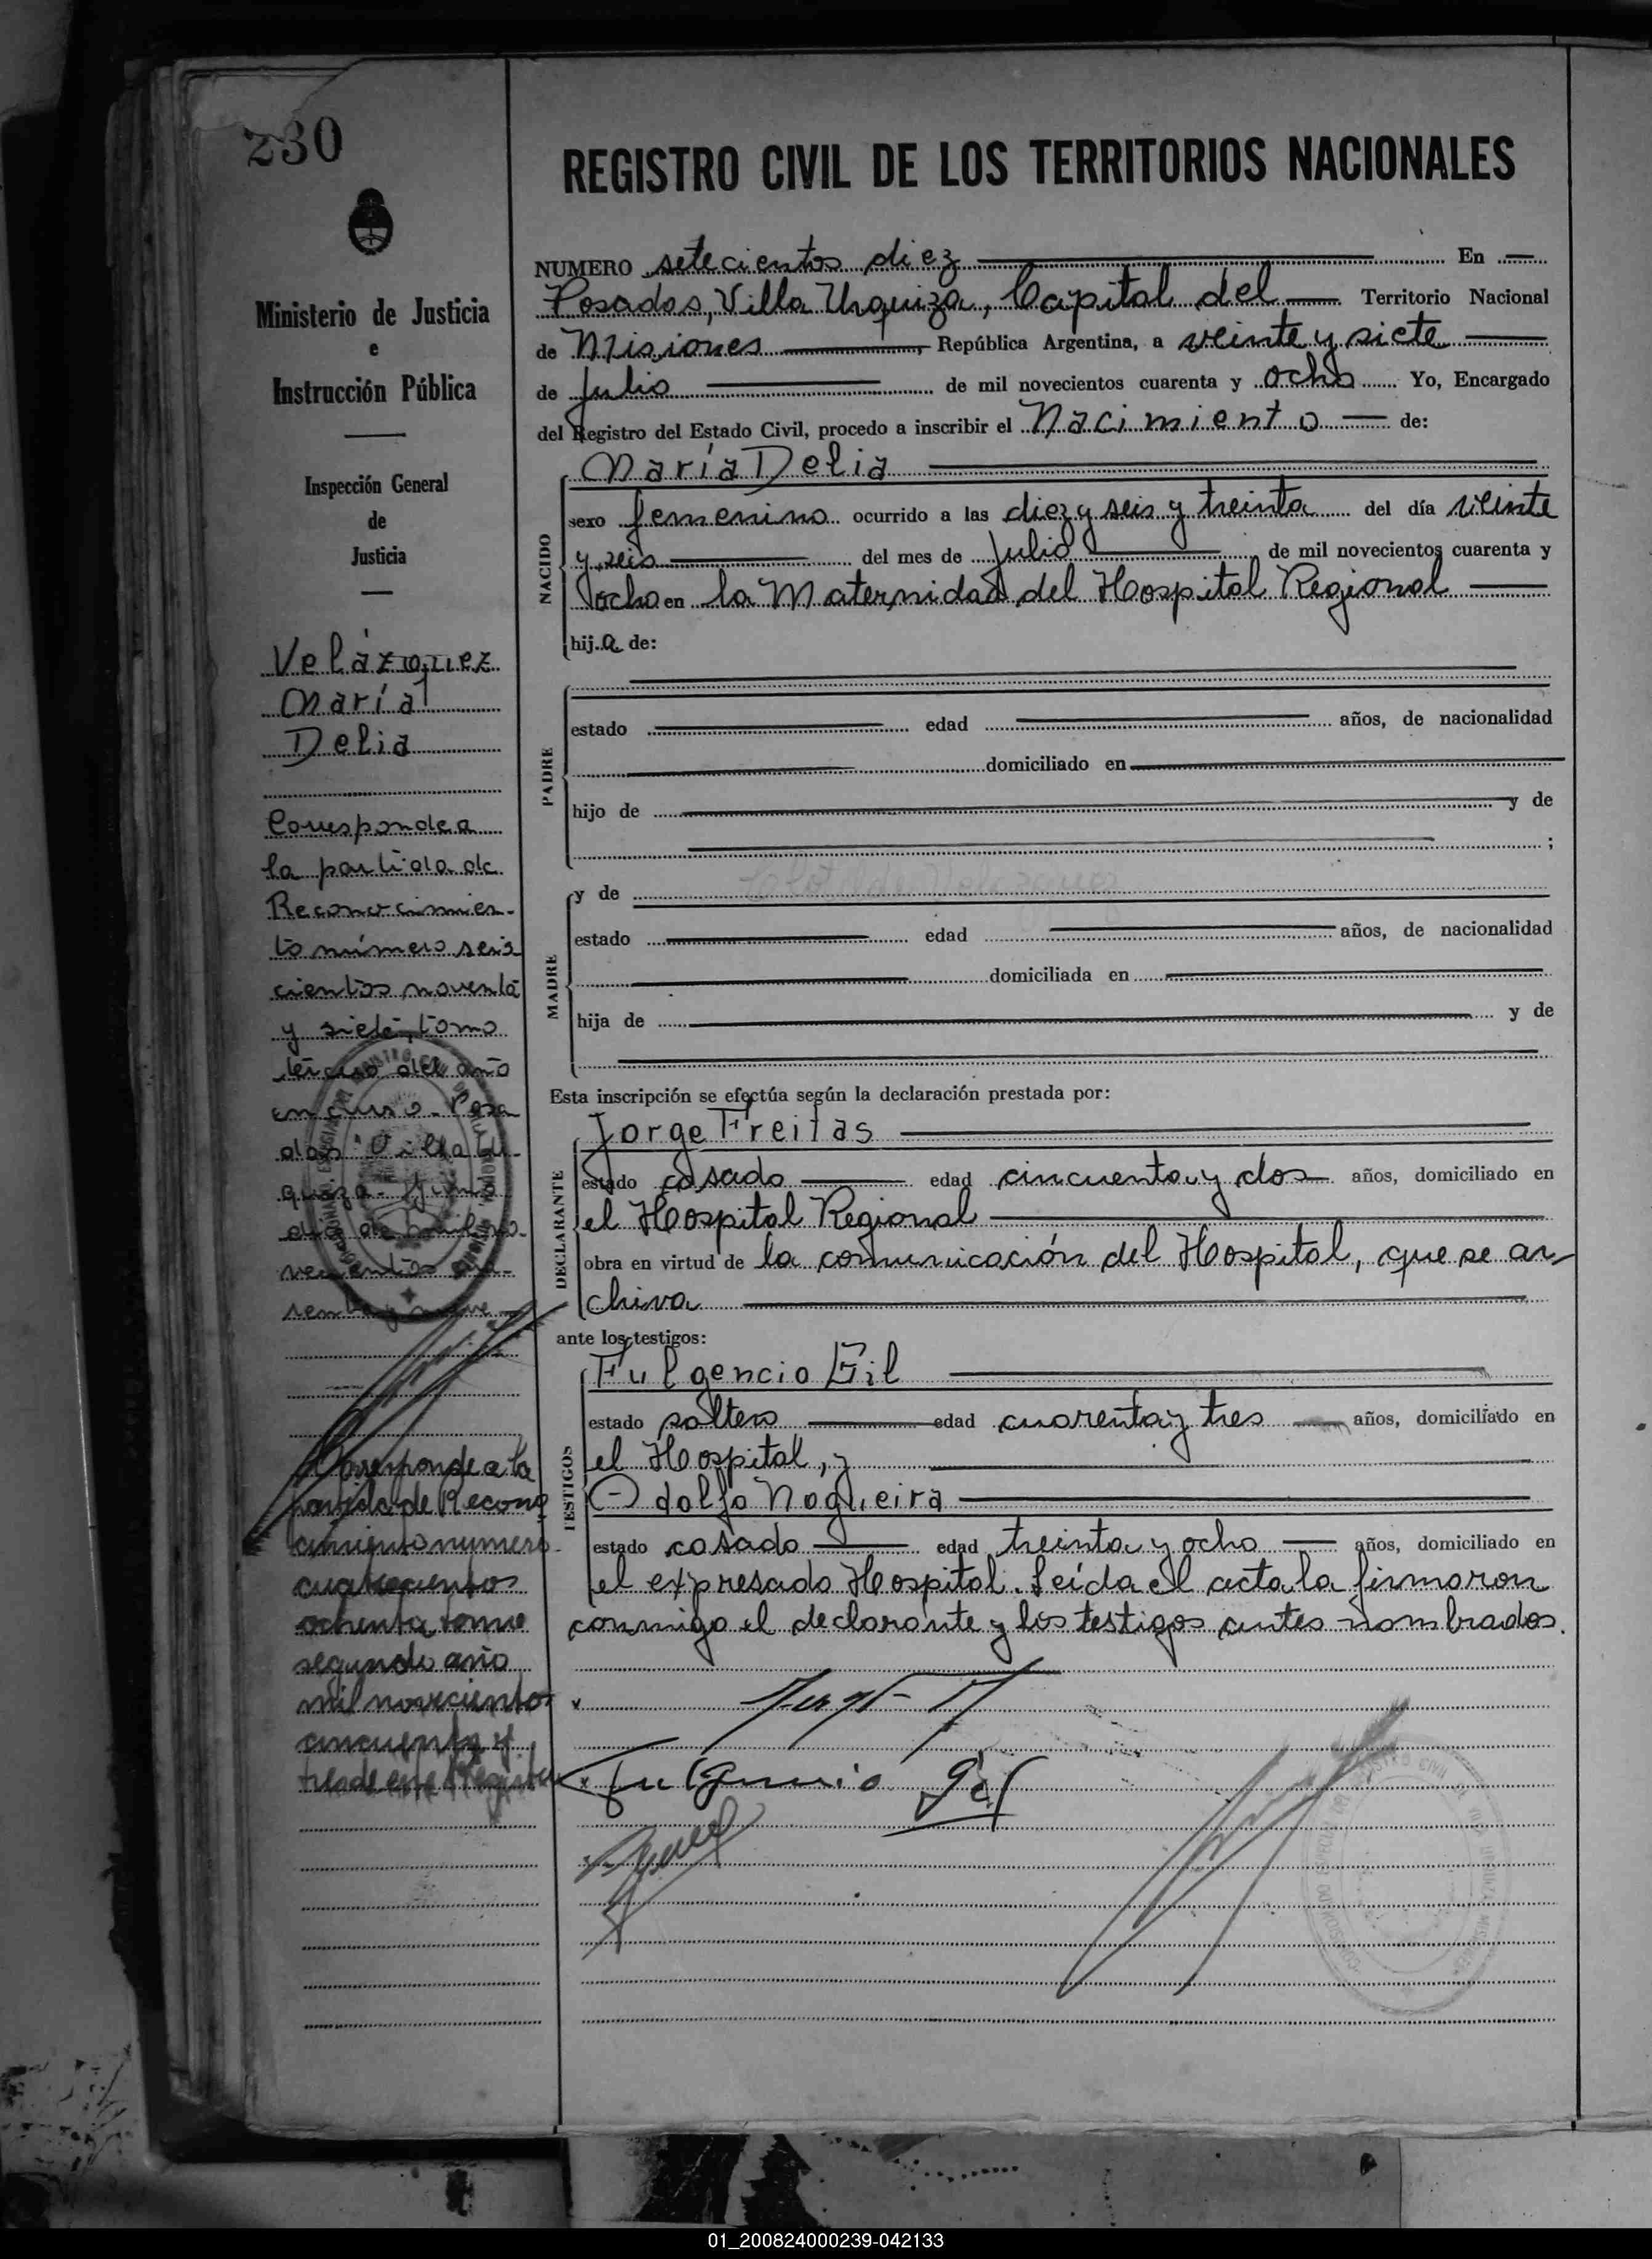 230
REGISTRO CIVIL DE LOS TERRITORIOS NACIONALES
Ministerio de Justicia
e
Instrucción Pública
Inspección General
de
Justicia
Velázquez
María
Delia
Corresponde a
la partida de
Reconocimien-
to número seis
cientos noventa
y siete, tomo
tercero del año
en curso. Posa
das Villa Ur-
quiza.
de mil no-
vecientos
Corresponde a la
partida de Recono
cimiento numero
cuatrocientos
ochenta tomo
segundo año
mil novecientos
cincuenta y
tres de este Registro
NUMERO setecientos diez En
Posadas, Villa Urquiza, Capital del Territorio Nacional
de Misiones, República Argentina, a veinte y siete
de Julio de mil novecientos cuarenta y ocho Yo, Encargado
del Registro del Estado Civil, procedo a inscribir el Nacimiento de:
NACIDO
María Delia
sexo femenino ocurrido a las diez y seis y treinta del día veinte
y seis del mes de Julio de mil novecientos cuarenta y
ocho en la Maternidad del Hospital Regional
hija de:
PADRE
estado edad años, de nacionalidad
domiciliado en
hijo de y de
;
MADRE
y de
estado edad años, de nacionalidad
domiciliada en
hija de y de
Esta inscripción se efectúa según la declaración prestada por:
DECLARANTE
Jorge Freitas
estado casado edad cincuenta y dos años, domiciliado en
el Hospital Regional
obra en virtud de la comunicación del Hospital, que se ar-
chiva
ante los testigos:
TESTIGOS
Fulgencio Gil
estado soltero edad cuarenta y tres años, domiciliado en
el Hospital, y
Adolfo Nogueira
estado casado edad treinta y ocho años, domiciliado en
el expresado Hospital. Leída el acta la firmaron
conmigo el declarante y los testigos antes nombrados.
Fulgencio Gil
01_200824000239-042133